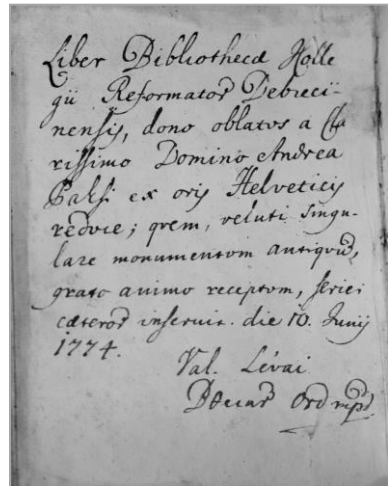 Liber Bibliothecæ Colle
gii Reformator Debreci-
nensis, dono oblatus a Cla
rissimo Domino Andrea
Paksi ex oris Helveticis
reduce; quem, veluti singu-
lare monumentum antiquū,
grato animo receptum, seriei
cæteror inseruit. die 10. Junij
1774.
Val. Lévai
Ord mpr